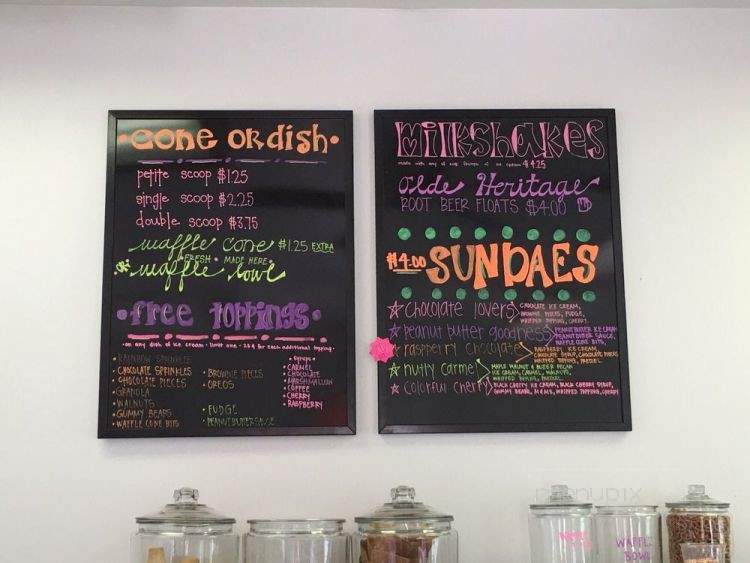 •Cone or dish•
petite scoop $1.25
single scoop $2.25
double scoop $3.75
waffle cone $1.25 EXTRA
•FRESH • MADE HERE•
or waffle bowl
•free toppings•
•on any dish of ice cream • limit one • for each additional topping•
•RAINBOW SPRINKLES
•CHOCOLATE SPRINKLES
•CHOCOLATE PIECES
•GRANOLA
•WALNUTS
•GUMMY BEARS
•WAFFLE CONE BITS
•BROWNIE PIECES
•OREOS
•FUDGE
•PEANUT BUTTER SAUCE
•Syrups•
•CARMEL
•CHOCOLATE
•MARSHMALLOW
•COFFEE
•CHERRY
•RASPBERRY
Milkshakes
made with any of our flavors of ice cream $4.25
Olde Heritage
ROOT BEER FLOATS $4.00
$4.00 SUNDAES
chocolate lovers
CHOCOLATE ICE CREAM,
BROWNIE PIECES, FUDGE,
WHIPPED TOPPING, CHERRY
peanut butter goodness
PEANUT BUTTER ICE CREAM
PEANUT BUTTER SAUCE,
WAFFLE CONE BITS,
raspberry chocolate
RASPBERRY ICE CREAM,
CHOCOLATE SYRUP, CHOCOLATE PIECES
WHIPPED TOPPING, PRETZEL
nutty carmel
MAPLE WALNUT & BUTTER PECAN
ICE CREAM, CARMEL, WALNUTS,
WHIPPED TOPPING, PRETZEL
colorful cherry
BLACK CHERRY ICE CREAM, BLACK CHERRY SYRUP,
GUMMY BEARS, M&MS, WHIPPED TOPPING, CHERRY
WAFFLE
BOWL